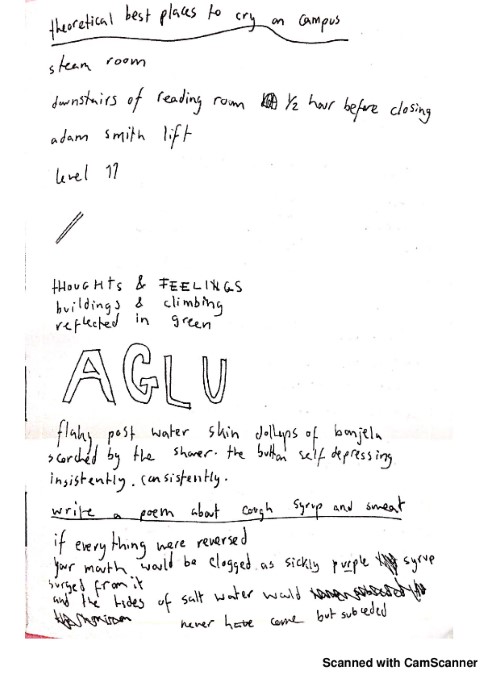 theoretical best places to cry on campus
steam room
downstairs of reading room 1/2 hour before closing
adam smith lift
level 11
THOUGHTS & FEELINGS
buildings & climbing
reflected in green
AGLU
flaky post water skin dollups of bonjela
scorched by the shower. the button self depressing
insistently. consistently.
write a poem about cough syrup and sweat
if everything were reversed
your mouth would be clogged as sickly purple syrup
surged from it
and the tides of salt water would
never have come but subceded
Scanned with CamScanner